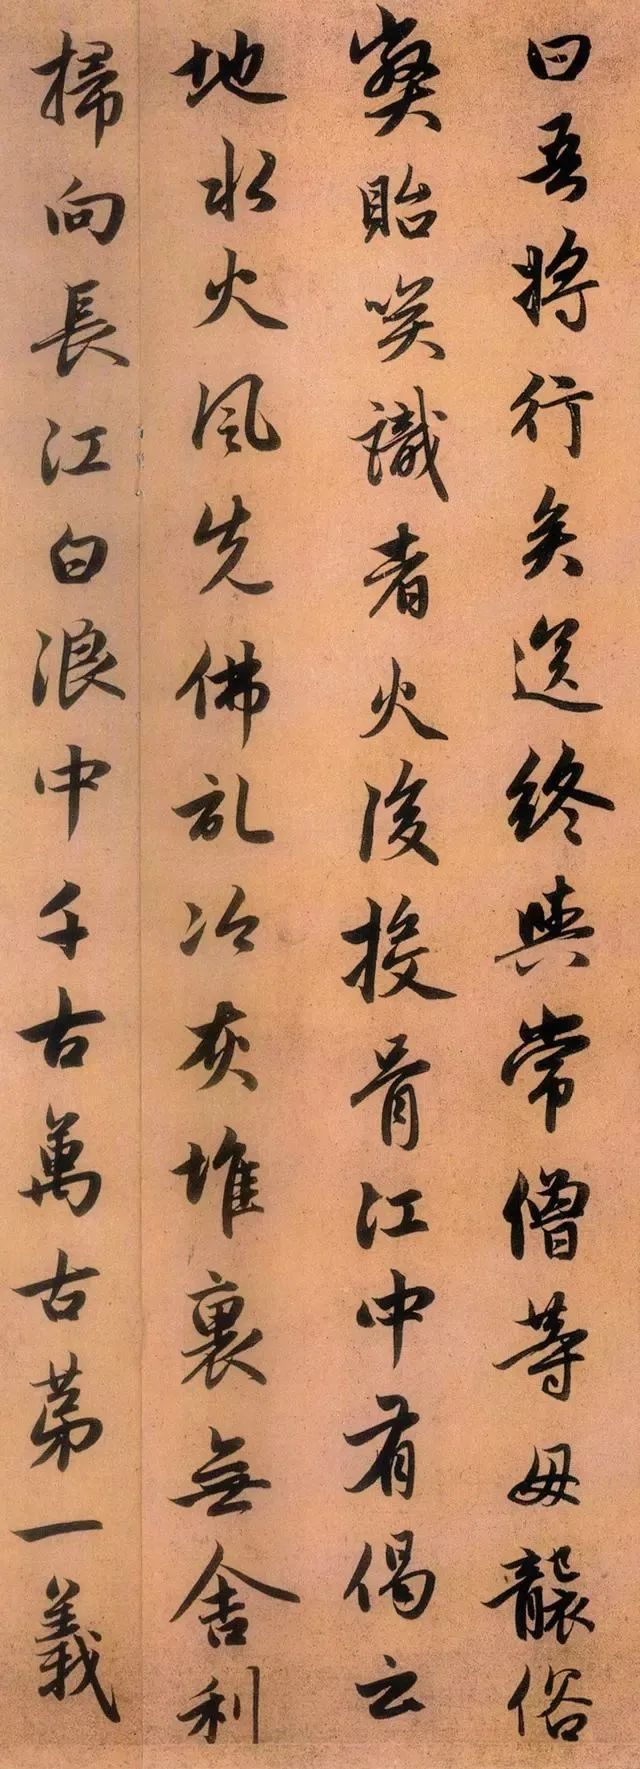 曰吾將行矣送終與常僧等毋襲俗
獘貽咲識者火後投骨江中有偈云
地水火風先佛記冷灰堆裏無舍利
掃向長江白浪中千古萬古第一義